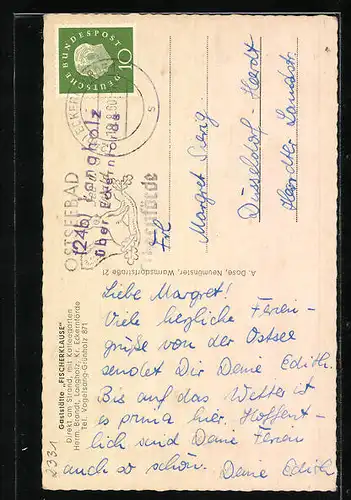 DEUTSCHE BUNDESPOST
10
OSTSEEBAD
(24b) Langholz
über Eckernförde
Frl
Margret
Düsseldorf - Heerdt
Heerdter Landstr.
A. Dose, Neumünster, Warmsdorfstraße 21
Liebe Margret!
Viele herzliche Ferien-
grüße von der Ostsee
sendet Dir Deine Edith.
Bis auf das Wetter ist
es prima hier. Hoffent-
lich sind Deine Ferien
auch so schön. Deine Edith
Gaststätte „FISCHERKLAUSE"
Direkt am Strand, mit Kaffeegarten
Herm. Brandt, Langholz, Kr. Eckernförde
Tel. Vogelsang-Grünholz 871
2331